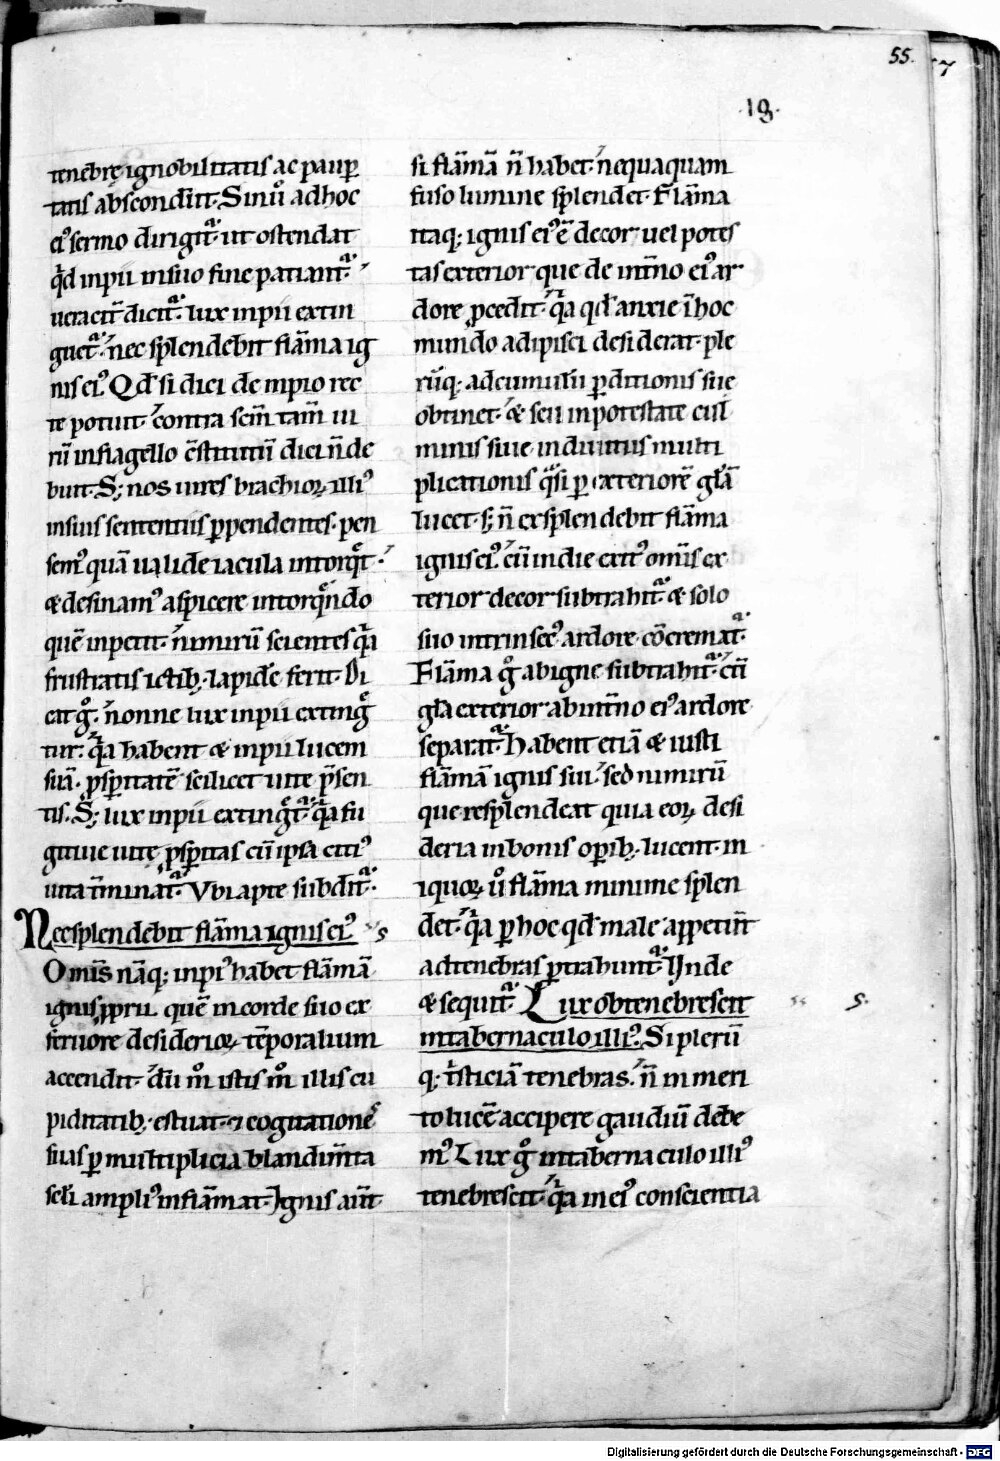 55.
19.
tenebrę ignobilitatis ac paup̱
tatis abscondunt. Sin ů adhoc
ei᾽ sermo dirigit᷑. ut ostendat
qd̓ impii insuo fine patiant᷑.
ueracit̄ dicit᷑. lux impii extin
guet᷑. nec splendebit flāma ig
nis ei᾽. Qd̄ si dici de impio rec
te potuit. contra scm̄ tam̄ ui
rū inflagello c̄stitutū dici n̄ de
buit. S; nos uires brachioꝝ illi᾽
insuis sententiis ꝑpendentes. pen
sem᾽ quā ualide iacula intorq̄t.
& desinam᾽ aspicere intorq̄ndo
quē inpetit. nimirū scientes qa̓
frustratis ictib; lapidē ferit. Di
cat g̊. nonne lux impii exting̊
tur. qa̓ habent & impii lucem
suā. ꝓsꝑitatē scilicet uitę p̄sen
tis. S; lux impii exting̊t᷑. qa̓ fu
gitiuę uitę ꝓsꝑitas cū ipsa citi᾽
uita t̄minat᷑. Vbi apte subdit᷑.
Nec splendebit flāma ignis ei᾽ s
Omis̄ nāq; impi᾽ habet flāmā
ignis ꝓprii. quē in corde suo ex
feruore desiderioꝝ tēporalium
accendit. dū m̊ istis m̊ illis cu
piditatib; estuat. ⁊ cogitationes
suas ꝑ multiplicia blandimt̄a
sclī ampli᾽ inflāmat. Ignis aūt
si flāmā n̄ habet. nequaquam
fuso lumine splendet. Flāma
itaq; ignis ei᾽ ē decor uel potes
tas exterior que de int̄no ei᾽ ar
dore ꝓcedit. qa̓ qd̄ anxie ī hoc
mundo adipisci desiderat. ple
rūq; ad cumulū ꝑditionis suę
obtinet. & seu in potestate cul
minis siue in diuitiis multi
plicationis qͣsi ꝑ exteriorē glā
lucet. S; n̄ exsplendebit flāma
ignis ei᾽. cū in die exit᾽ omis̄ ex
terior decor subtrahit᷑. & solo
suo intrinsec᾽ ardore cōcremat᷑.
Flāma g̊ ab igne subtrahit᷑. cū
glā exterior ab int̄no ei᾽ ardore
separat᷑. Habent etiā & iusti
flāmā ignis sui. sed nimirū
que resplendeat quia eoꝝ desi
deria in bonis oꝑib; lucent. in
iquoꝝ ů flāma minime splen
det. qa̓ ꝑ hoc qd̄ male appetūt
ad tenebras ꝑtrahunt᷑. Vnde
& sequit᷑. Lux obtenebrescit s.
in tabernaculo illi᾽. Si plerū
q; t̓sticiā tenebras. n̄ inmeri
to lucē accipere gaudiū debe
m᾽. Lux g̊ in tabernaculo illi᾽
tenebrescit. qa̓ in ei᾽ conscientia
Digitalisierung gefördert durch die Deutsche Forschungsgemeinschaft - DFG